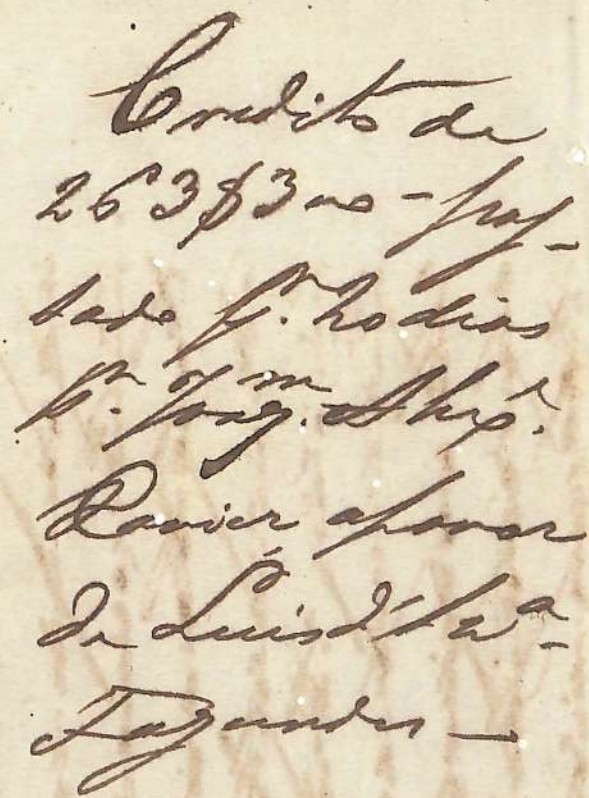 Credito de
263$300 - pas-
sado p.r 20 dias
p.r Joaq.m Alex.e
Xavier a favor
de Luis d'Sz.a
Fagundes —